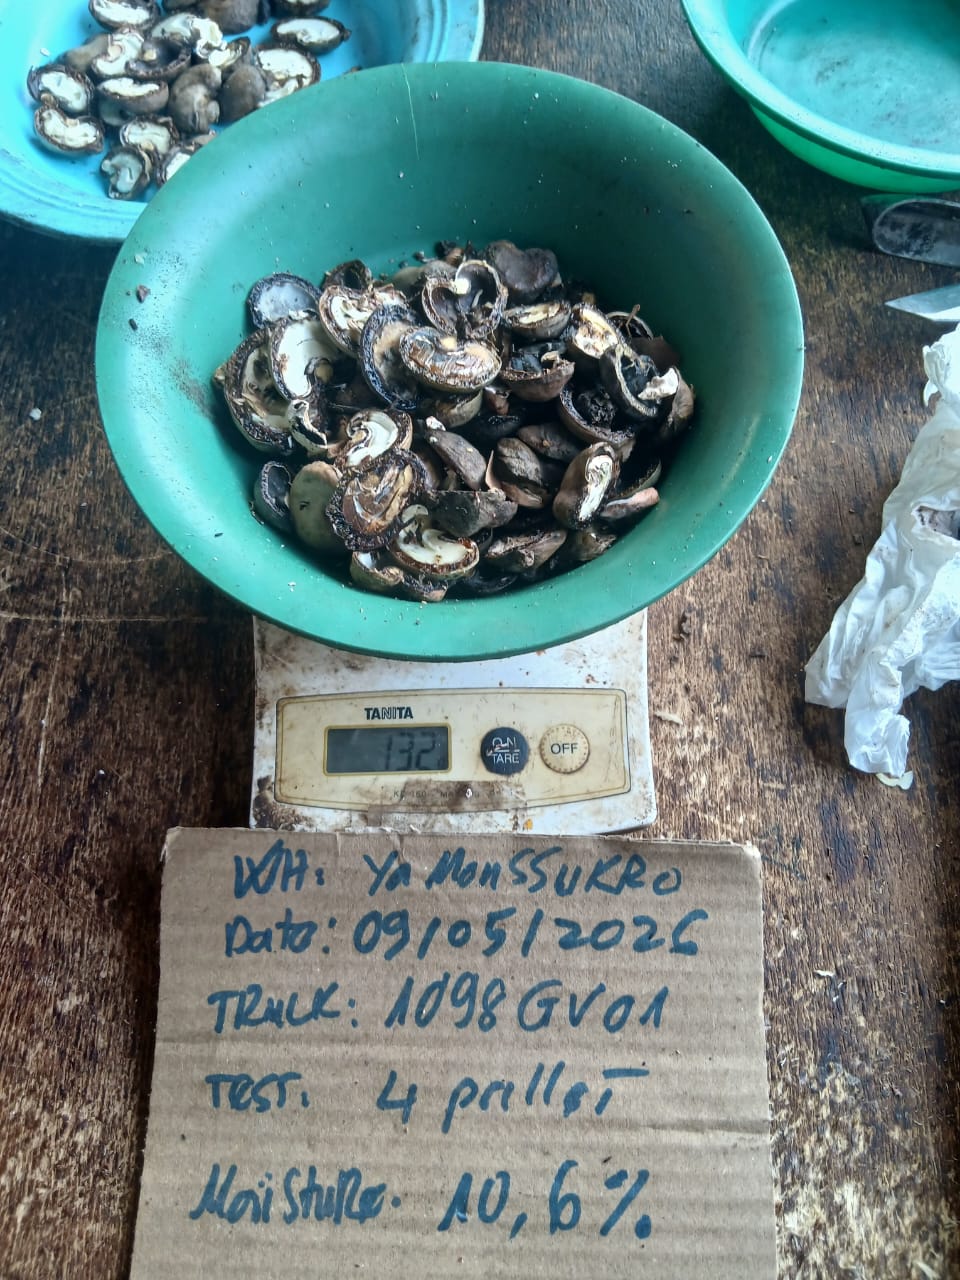 TANITA
132
ON
TARE
OFF
WH: YaMonSSUKRO
Date: 09/05/2026
TRUCK: 1098GV01
TEST: 4 pallet
MoiStuRe. 10,6%